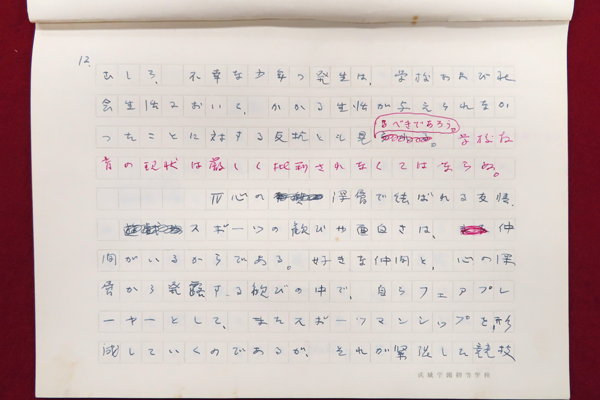 12.
むしろ、不幸な少年の発生は、学校および社
会生活において、かかる生活が与えられなか
ったことに対する反抗とも見るべきであろう。学校教
育の現状は厳しく批判されなくてはならぬ。
Ⅳ 心の深奥で結ばれる友情.
スポーツの歓びや面白さは、仲
間がいるからである。好きな仲間と、心の深
奥から発露する歓びの中で、自らフェアプレ
ーヤーとして、またスポーツマンシップを、形
成していくのであるが、それが緊迫した競技
成城学園初等学校